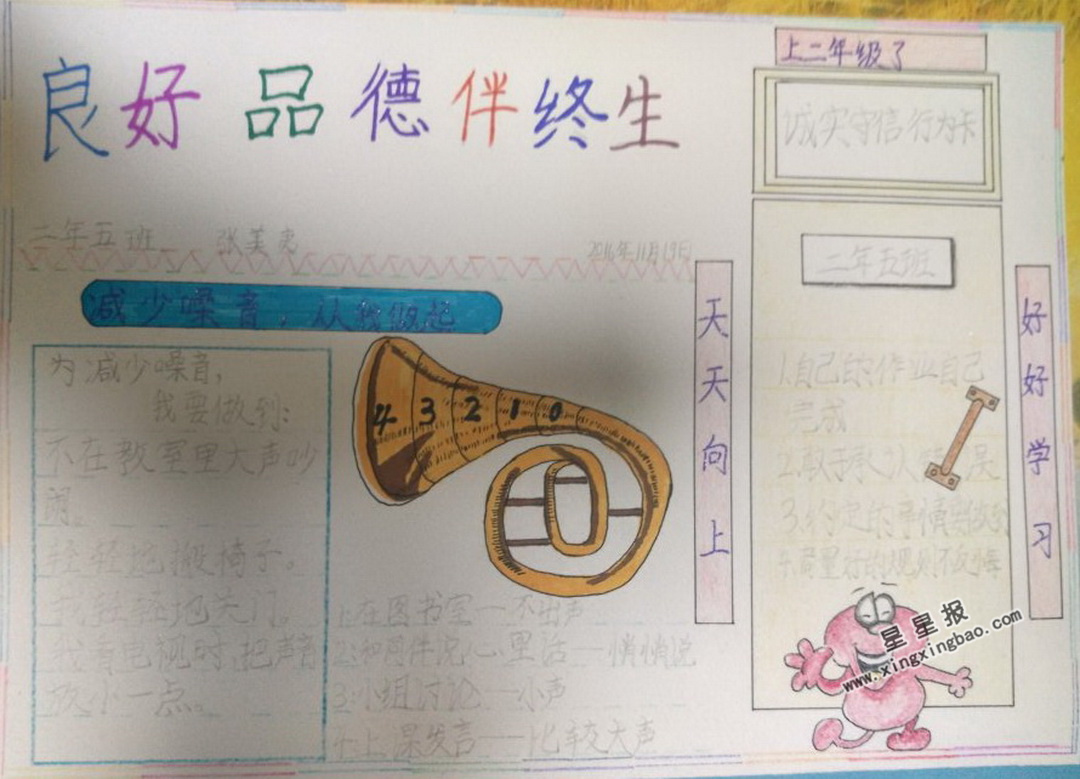 良好品德伴终生
二年五班 张美
2016年11月19日
减少噪音,从我做起
为减少噪音,
我要做到:
不在教室里大声吵
闹。
轻轻地搬椅子。
轻轻地关门
电视时把声音
放小一点。
4 3 2 1 0
1.在图书室—不出声
2.和同伴说心里话—悄悄说
3.小组讨论—小声
4.上课发言——比较大声
天天向上
上二年级了
诚实守信行为卡
二年五班
1.自己的作业自己
完成
2.敢于承认
3.约定的事情要做
4.商量好的规则不反悔
好好学习
星星报
www.xingxingbao.com